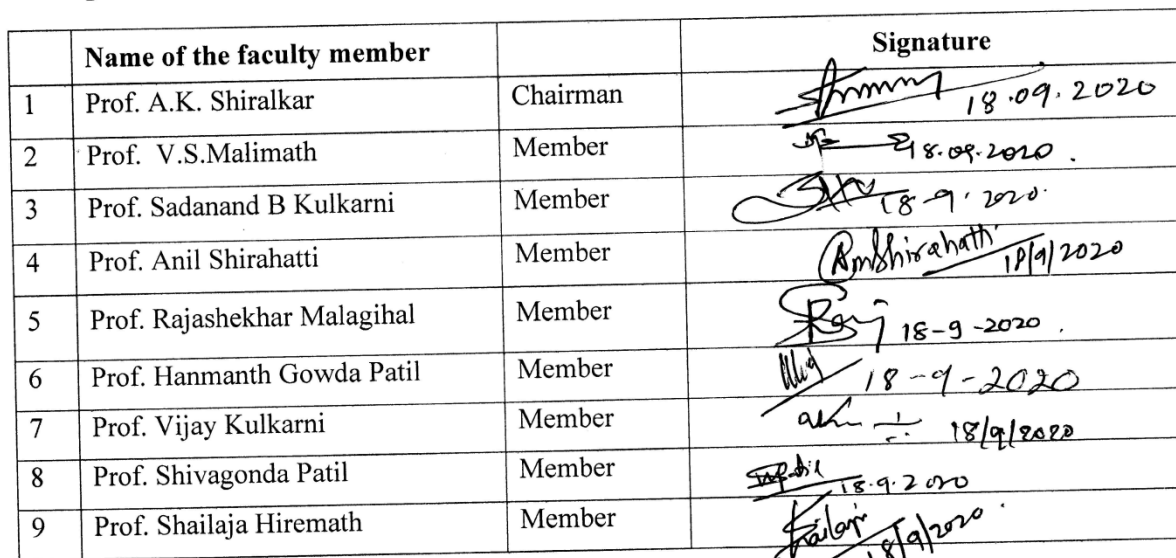 Name of the faculty member Signature
1 Prof. A.K. Shiralkar Chairman 18.09.2020
2 Prof. V.S.Malimath Member 18.09.2020.
3 Prof. Sadanand B Kulkarni Member 18-9.2020.
4 Prof. Anil Shirahatti Member AmShirahatti 18/9/2020
5 Prof. Rajashekhar Malagihal Member 18-9-2020.
6 Prof. Hanmanth Gowda Patil Member 18-9-2020
7 Prof. Vijay Kulkarni Member 18/9/2020
8 Prof. Shivagonda Patil Member 18.9.2020
9 Prof. Shailaja Hiremath Member 18/9/2020.